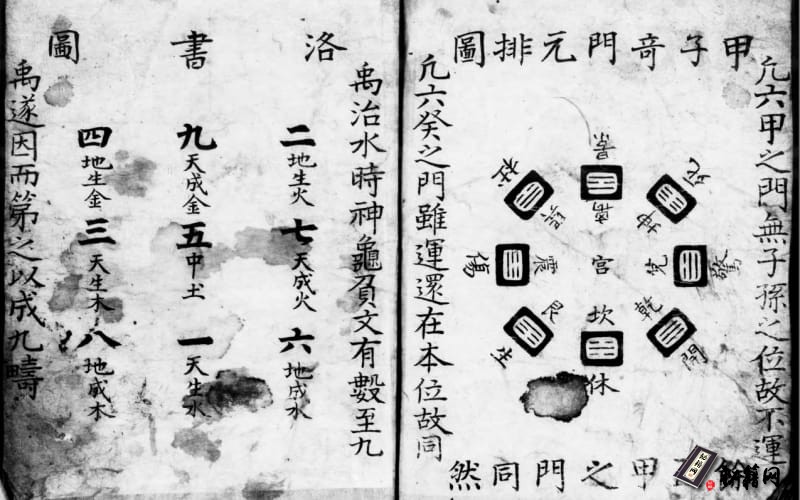 甲子竒門元排圖
凢六甲之門無子孫之位故不運
景
離
死
坤
驚
兌
開
乾
休
坎
生
艮
傷
震
杜
巽
宮
凢六癸之門雖運還在本位故同
甲之門同然
洛書圖
禹治水時神龜負文有數至九
二
地生火
七
天成火
六
地成水
九
天成金
五
中土
一
天生水
四
地生金
三
天生木
八
地成木
禹遂因而第之以成九疇
籍网